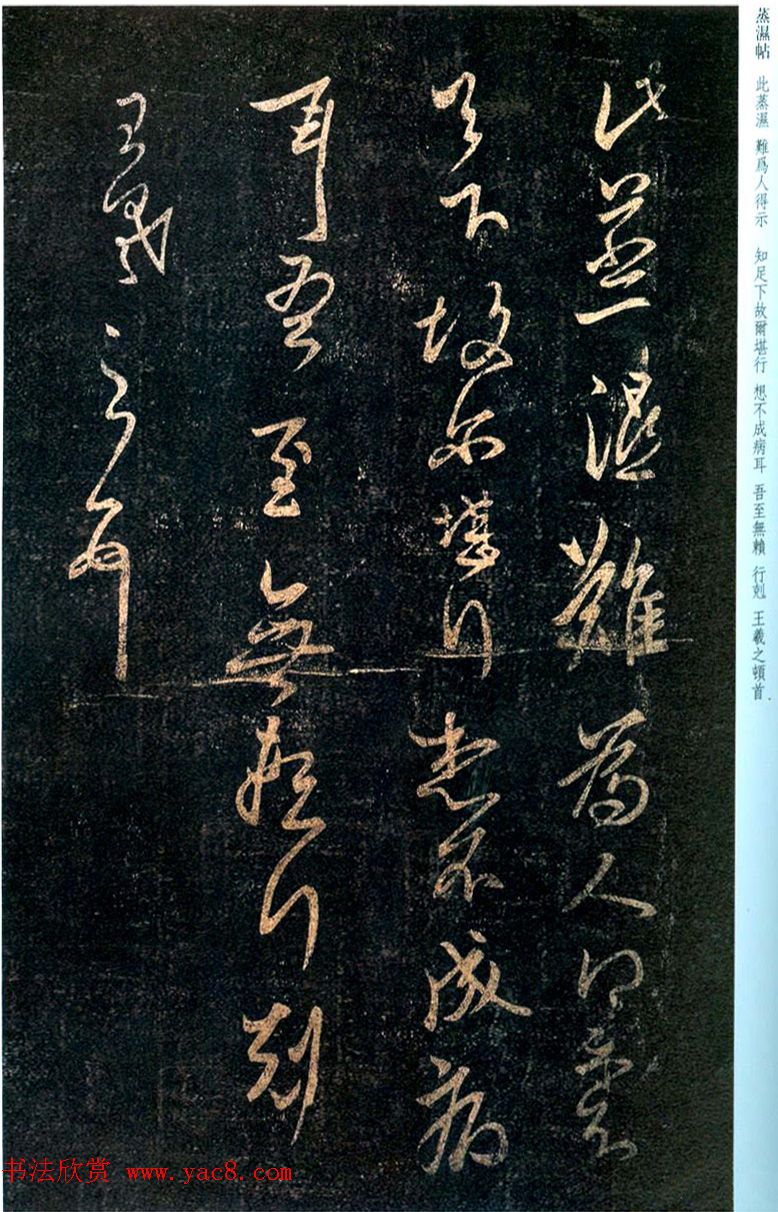 蒸濕帖 此蒸濕 難爲人得示 知足下故爾堪行 想不成病耳 吾至無賴 行剋 王羲之頓首
此蒸濕難為人得示知
足下故尔堪行想不成病
耳吾至無賴行剋
王羲之頓首
书法欣赏 www.yac8.com